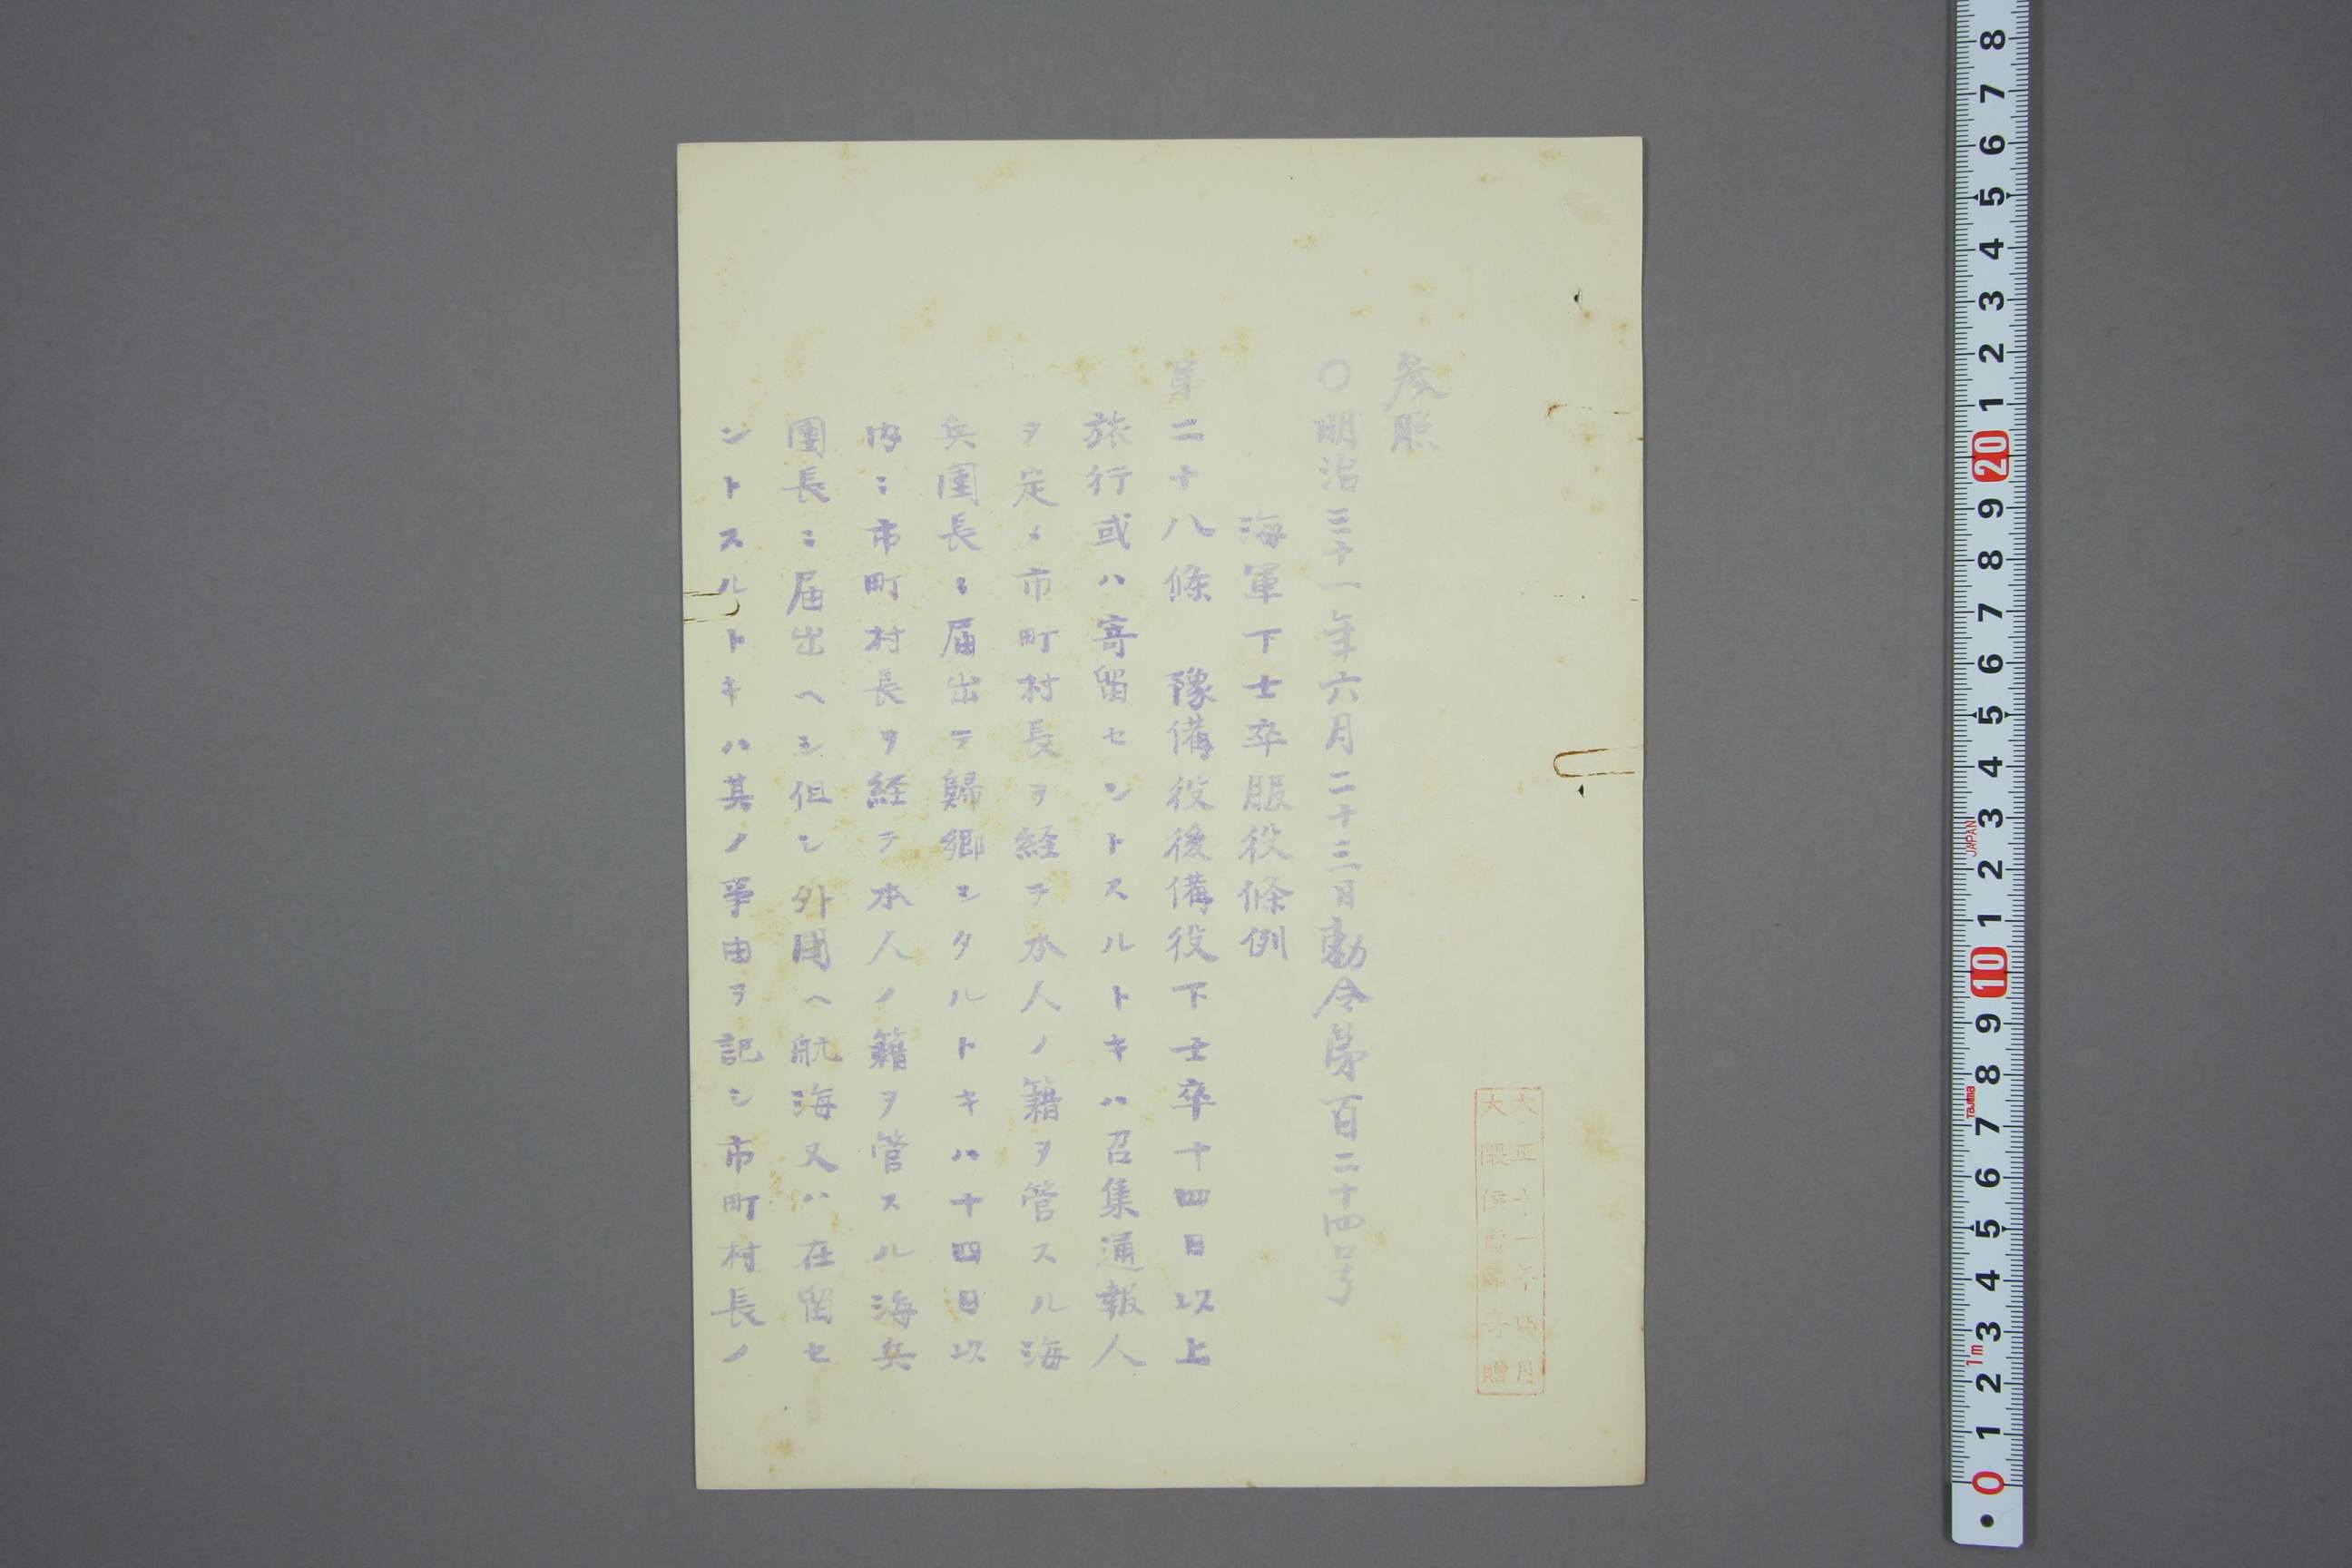 参照
〇明治三十一年六月二十三日勅令第百二十四号
海軍下士卒服役條例
第二十八條　豫備役後備役下士卒十四日以上
旅行或ハ寄留セントスルトキハ召集通報人
ヲ定メ市町村長ヲ経テ本人ノ籍ヲ管スル海
兵團長ニ届出テ歸郷シタルトキハ十四日以
内ニ市町村長ヲ経テ本人ノ籍ヲ管スル海兵
團長ニ届出ヘシ但シ外國ヘ航海又ハ在留セ
ントスルトキハ其ノ事由ヲ記シ市町村長ノ
大正十一年四月
大隈侯爵家寄贈
8 7 6 5 4 3 2 1 20 9 8 7 6 5 4 3 2 1 10 9 8 7 6 5 4 3 2 1 0
JAPAN
Tajima
1m